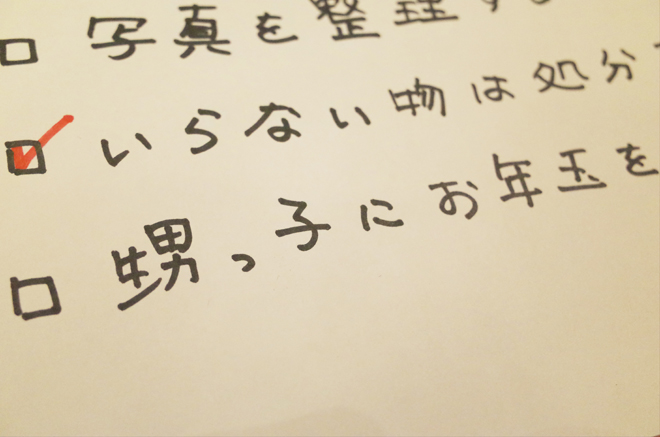 写真を整理す
いらない物は処分
甥っ子にお年玉を